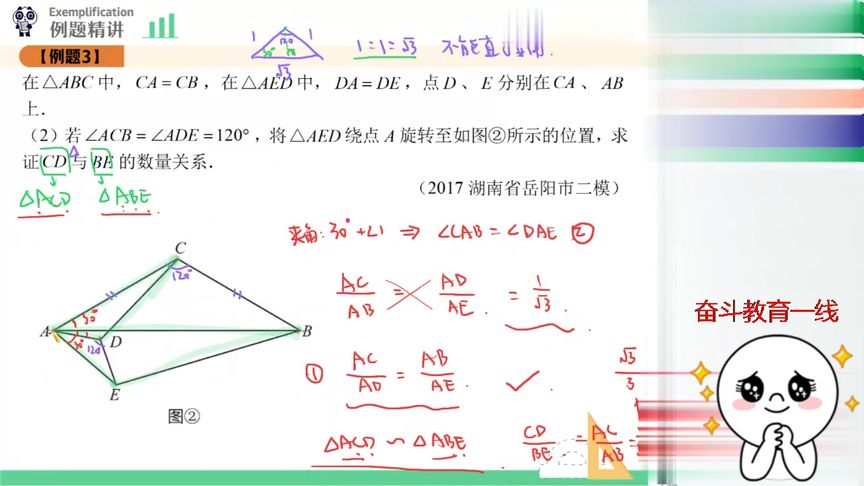 Exemplification
例题精讲
【例题3】
1 120° 1
30°
√3
1=1=√3 不能直
在△ABC中，CA=CB，在△AED中，DA=DE，点D、E分别在CA、AB
上．
（2）若∠ACB=∠ADE=120°，将△AED绕点A旋转至如图②所示的位置，求
证CD与BE的数量关系．
（2017湖南省岳阳市二模）
△ACD △ABE
夹角: 30°+∠1 ⇒ ∠CAB = ∠DAE ②
AC/AB = AD/AE = 1/√3
① AC/AD = AB/AE ✓
√3/3
△ACD ∽ △ABE
CD/BE = AC/AB =
C
120°
A
30°
30°
B
D
120°
E
图②
奋斗教育一线